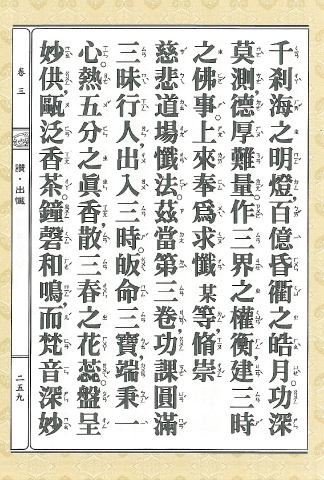 千剎海之明燈，百億昏衢之皓月。功深
莫測，德厚難量。作三界之權衡，建三時
之佛事。上來奉為求懺某等，脩崇
慈悲道場懺法。茲當第三卷，功課圓滿
三昧行人，出入三時。皈命三寶，端秉一
心。熱五分之眞香，散三春之花蕊。盤呈
妙供，甌泛香茶。鐘磬和鳴，而梵音深妙
卷三
讚・出懺
二五九